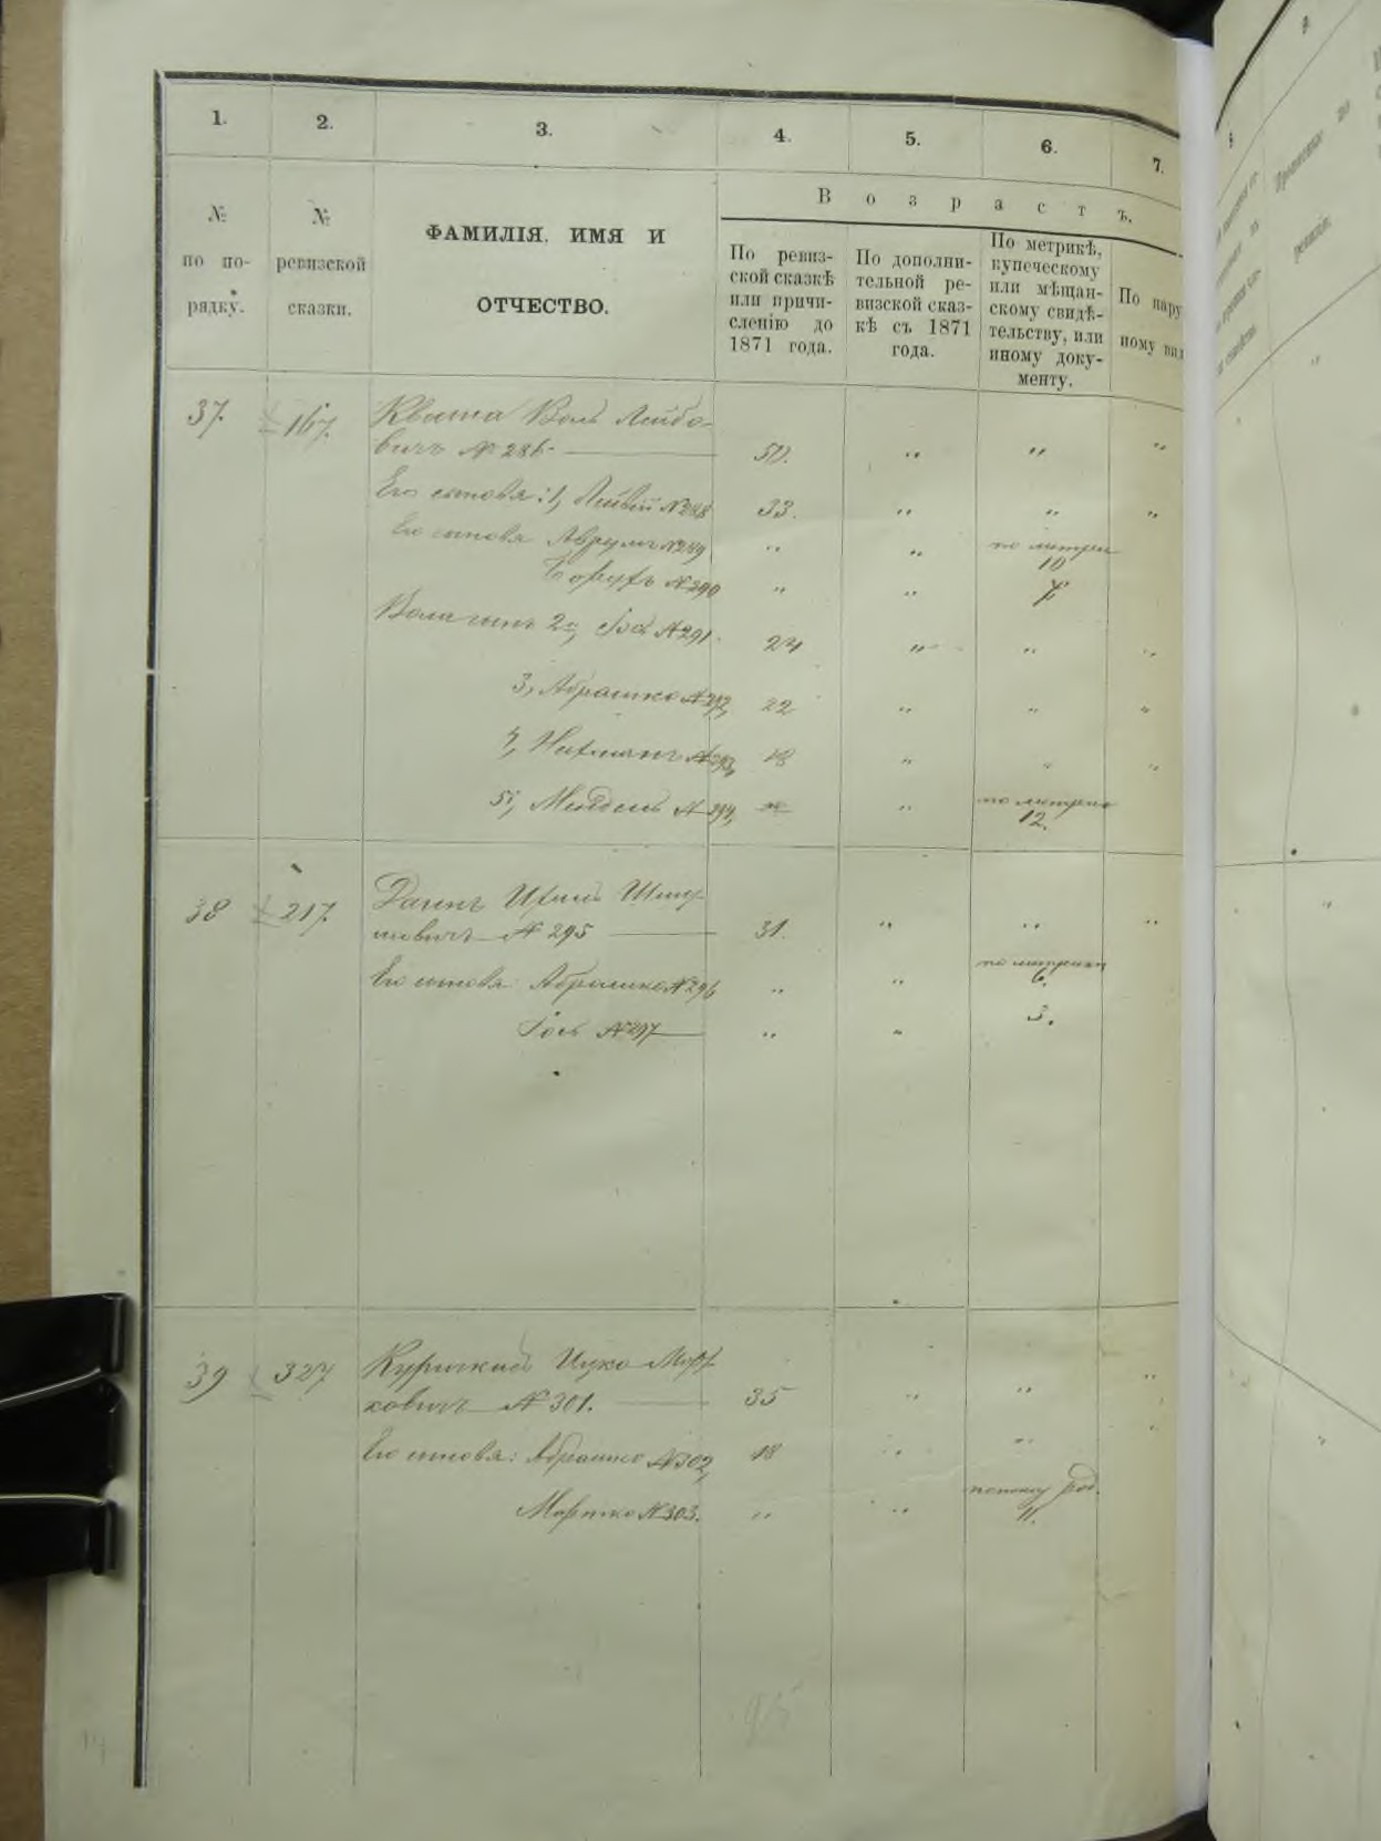 1. 2. 3. 4. 5. 6. 7.
В о з р а с т ъ.
№ по по-рядку.
№ ревизской сказки.
ФАМИЛІЯ, ИМЯ И
ОТЧЕСТВО.
По ревиз-
ской сказкѣ
или причи-
сленію до
1871 года.
По дополни-
тельной ре-
визской сказ-
кѣ съ 1871
года.
По метрикѣ,
купеческому
или мѣщан-
скому свидѣ-
тельству, или
иному доку-
менту.
По нару
ному вид
37. 167. Квата Воль Лейбо-
вичъ № 286. 50. " " "
Его сыновья: 1, Лейбій № 288 33. " " "
Его сыновя Аврумъ № 289 " " по метри 10
Борухъ № 290 " " 7.
2й, Іось № 291. 24 " " "
3, Абрашко № 292, 22 " " "
4, Нахманъ № 293, 18 " " "
5, Мендель № 294, " по метрике 12.
38 217. Ихиль Шму-
левичъ № 295 31. " " "
Его сыновя: Абрашко № 296 " " по метрики 6.
Іось № 297 " " 3.
39 327 Ицко Морд-
ковичъ № 301. 35 " " "
Его сыновя: Абрашко № 302, 18 " "
Мортко № 303. " " род. 11.